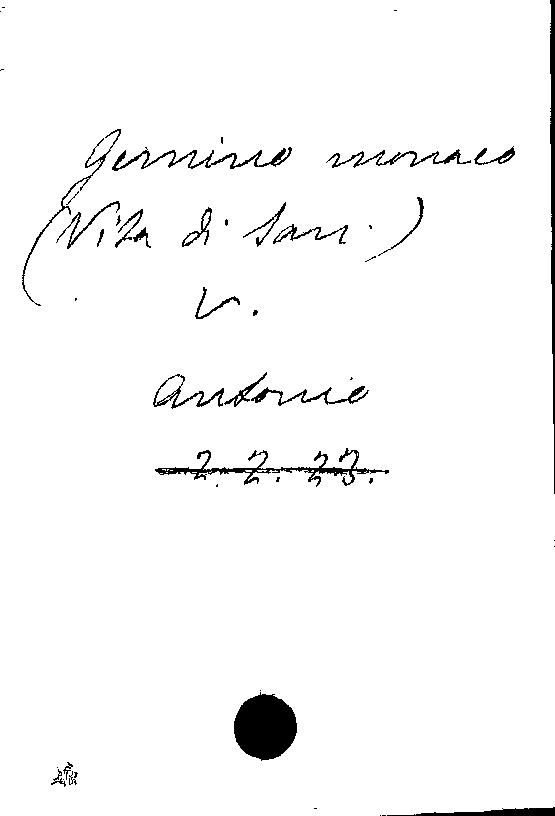 Gemino monaco
(Vita di San.)
V.
Antonio
2. 2. 23.